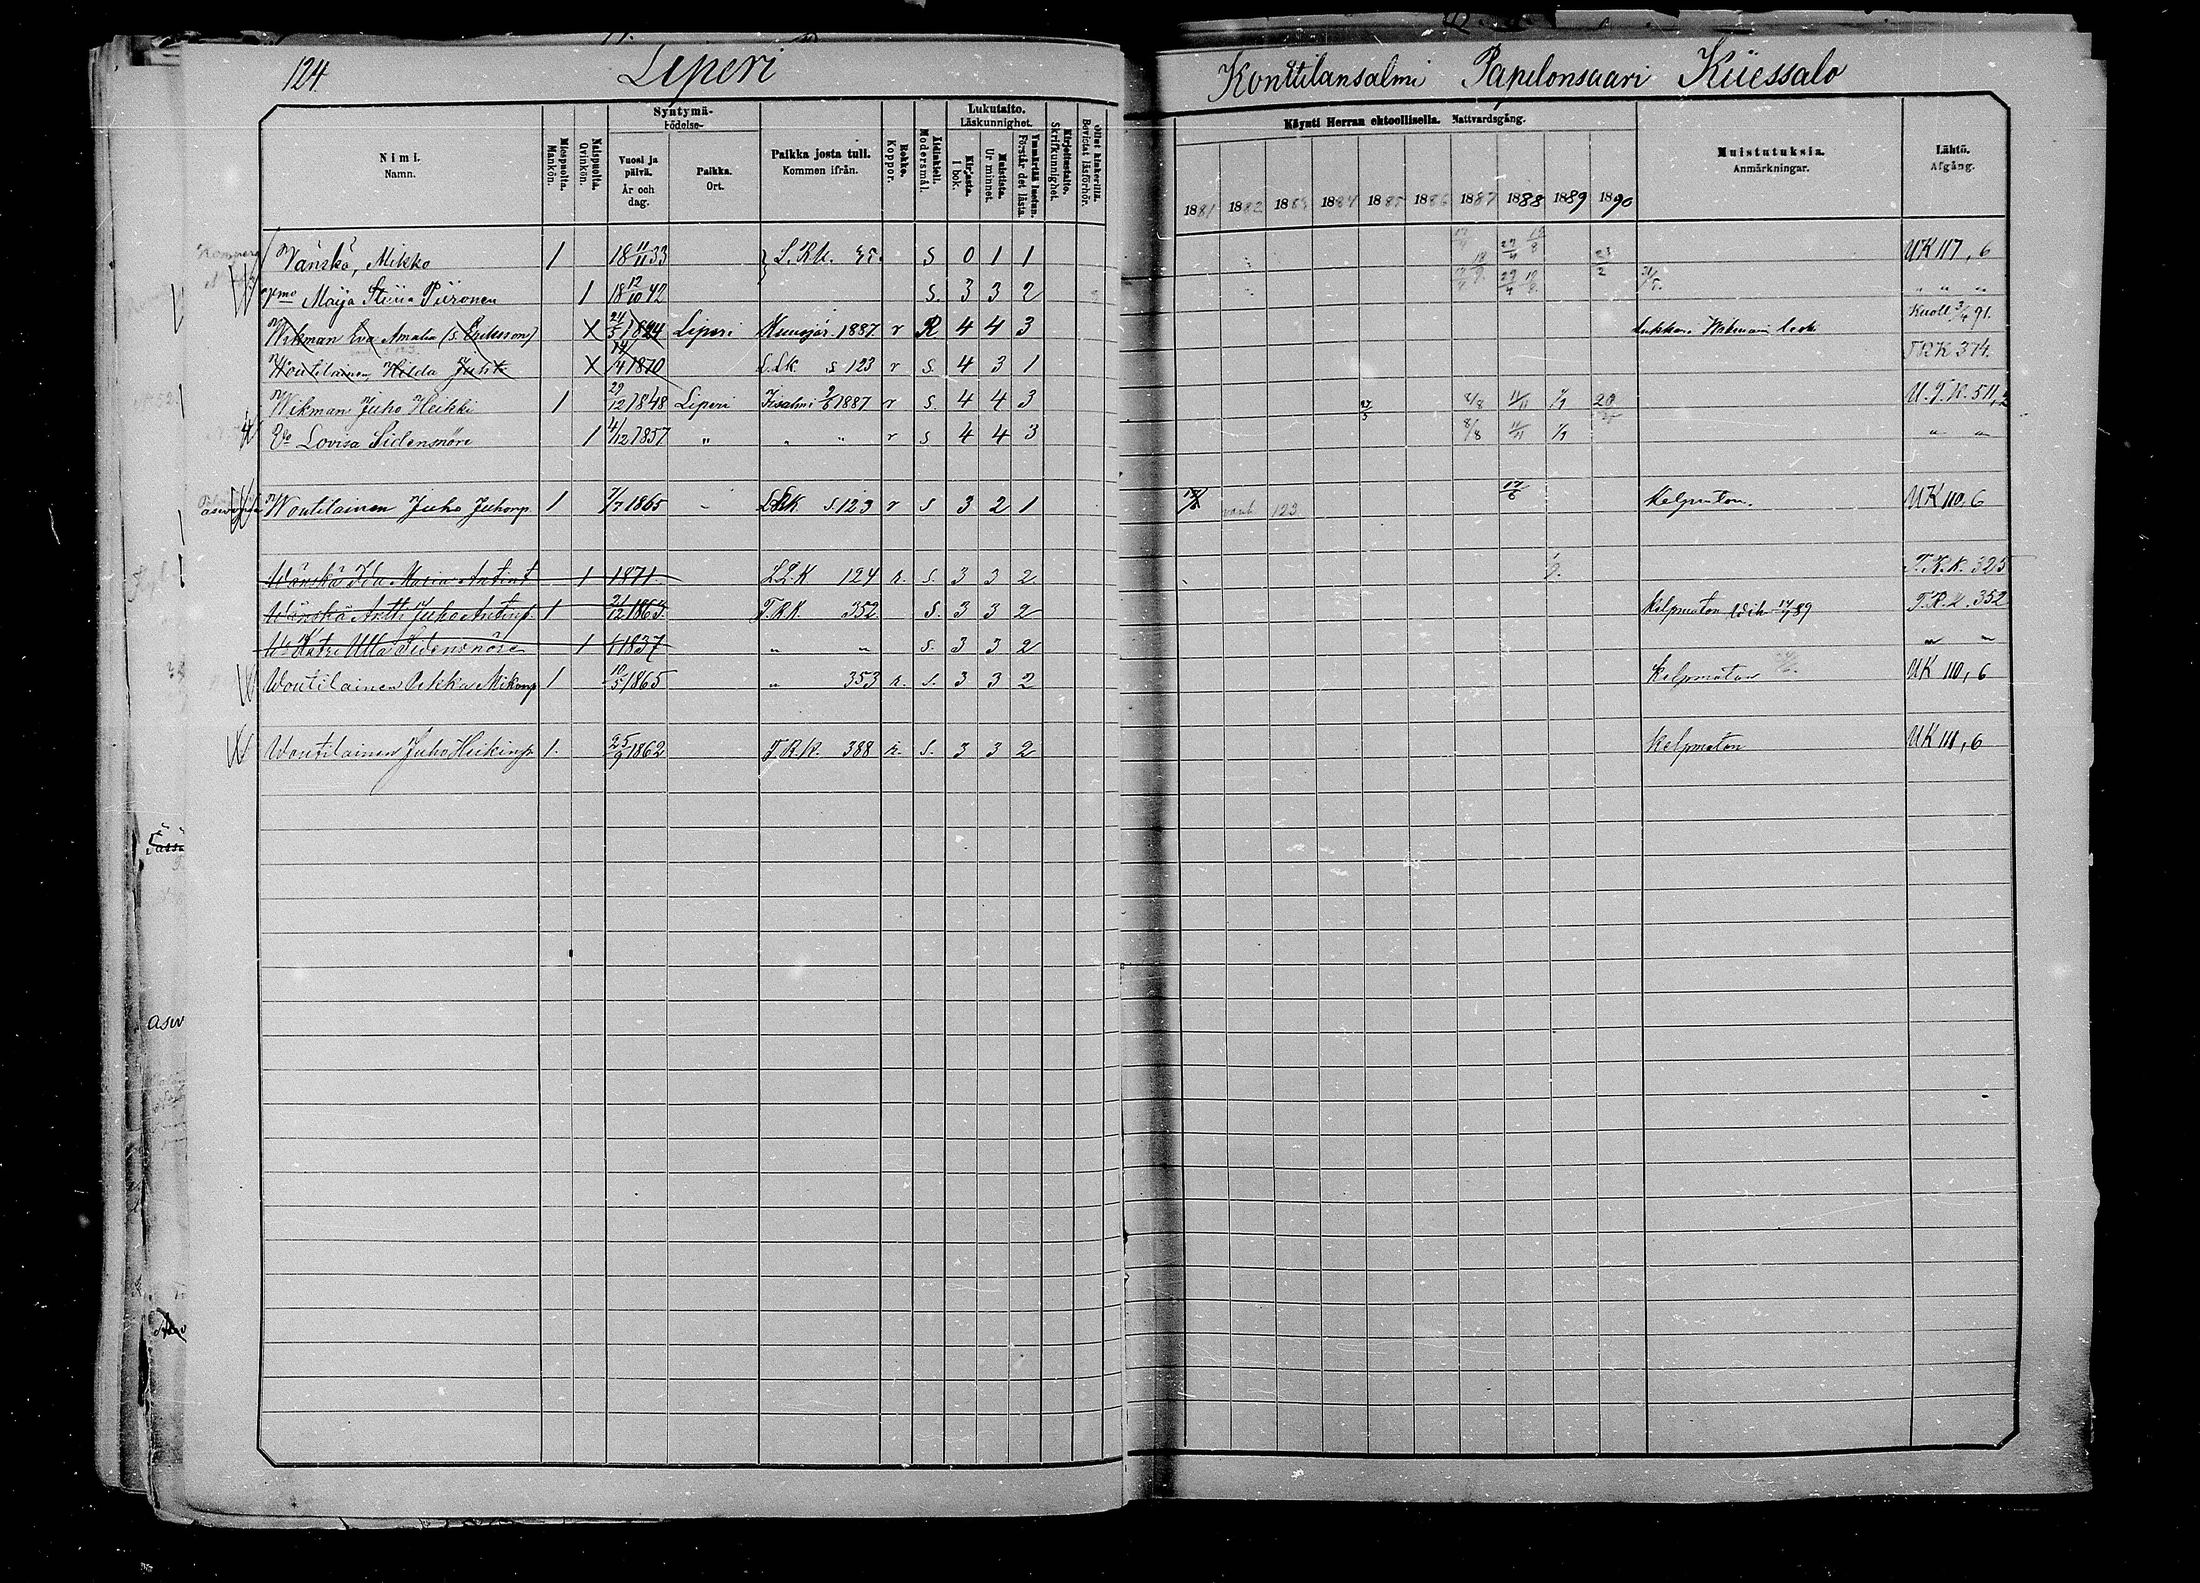 124. Liperi Konttilansalmi Papelonsaari Kiiessalo
Nimi. Namn.
Miespuolta. Mankön.
Naispuolta. Qvinkön.
Syntymä- Födelse-
Vuosi ja päivä. År och dag.
Paikka. Ort.
Paikka josta tull. Kommen ifrån.
Rokko. Koppor.
Äidinkieli. Modersmål.
Lukutaito. Läskunnighet.
Kirjasta. I bok.
Muistista. Ur minnet.
Ymmärtää luetun. Förstår det lästa.
Kirjoitustaito. Skrifkunnighet.
Ollut kinkerillä. Bevistat läsförhör.
Käynti Herran ehtoollisella. Nattvardsgång.
1881 1882 1883 1884 1885 1886 1887 1888 1889 1890
Muistutuksia. Anmärkningar.
Lähtö. Afgång.
Vänskä, Mikko 1 18 11/11 33 S 0 1 1 27/4 UK 117, 6
Maija Stiina Piironen 1 18 12/10 42 S. 3 3 2 " " "
Wikman Eva Amalia (s. Eriksson) X 24/5 1824 Liperi Kuusjär. 1887 r R 4 4 3 Lukkari Wikmanin leski 3/4 91.
Woutilainen, Hilda X 14/4 1870 L.L.K. s 123 r S. 4 3 1 T.R.K 374.
Wikman Juho Heikki 1 29/12 1848 Liperi Iisalmi 1887 r S. 4 4 3 8/8 11/11 1/9 20 U.T.K. 511, 2
Vo Lovisa Sidensnöre 1 4/12 1857 " " " r S 4 4 3 8/8 11/11 1/9 " "
Woutilainen Juho Juhonp. 1 7/7 1865 L.L.K. s. 123 r S 3 2 1 123 17/6 Kelpmaton. UK 110, 6
Wänskä Ida Maria Antint 1 1871. L.L.K 124 r. S. 3 3 2 T.R.K. 325
Wänskä Antti Juho Antinp. 1 21/12 1863. T.R.K. 352 S. 3 3 2 Kelpmaton 89 T.R.K. 352
Ulla Sidensnöre 1 1837 " " S. 3 3 2 " "
Woutilainen Pekka Mikonp 1 10/5 1865 " 353 r. S. 3 3 2 Kelpmaton UK 110, 6
Woutilainen Juho Heikinp. 1. 25/9 1862 T.R.K. 388 r. S. 3 3 2 Kelpmaton UK 111, 6
asw